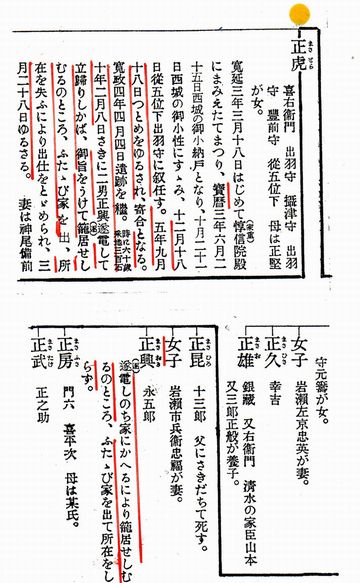 正虎
喜右衛門 出羽守 攝津守 出羽
守 豐前守 從五位下 母は正堅
が女。
寬延三年三月十八日はじめて惇信院殿(家重)
にまみえたてまつり、寶曆三年六月二
十五日西城の御小納戸となり、十月二十一
日西城の御小性にすゝみ、十二月十八
日從五位下出羽守に叙任す。五年九月
十八日つとめをゆるされ、寄合となる。
寬政四年四月四日遺跡を繼。時に六十歲 采地三百石
十年二月八日さきに二男正興逐電して
立歸りしかば、御旨をうけて籠居せし
むるのところ、ふたゝび家を出、所
在を失ふにより出仕をとゞめられ、三
月二十八日ゆるさる。 妻は神尾備前
守元籌が女。
女子 岩瀨左京忠英が妻。
正久 幸吉
正雄 銀藏 又右衛門 清水の家臣山本
又三郎正般が養子。
正昆 十三郎 父にさきだちて死す。
女子 岩瀨市兵衛忠福が妻。
正興 永五郎
逐電しのち家にかへるにより籠居せしむ
るのところ、ふたゝび家を出て所在をし
らず。
正房 門六 喜平次 母は某氏。
正武 正之助